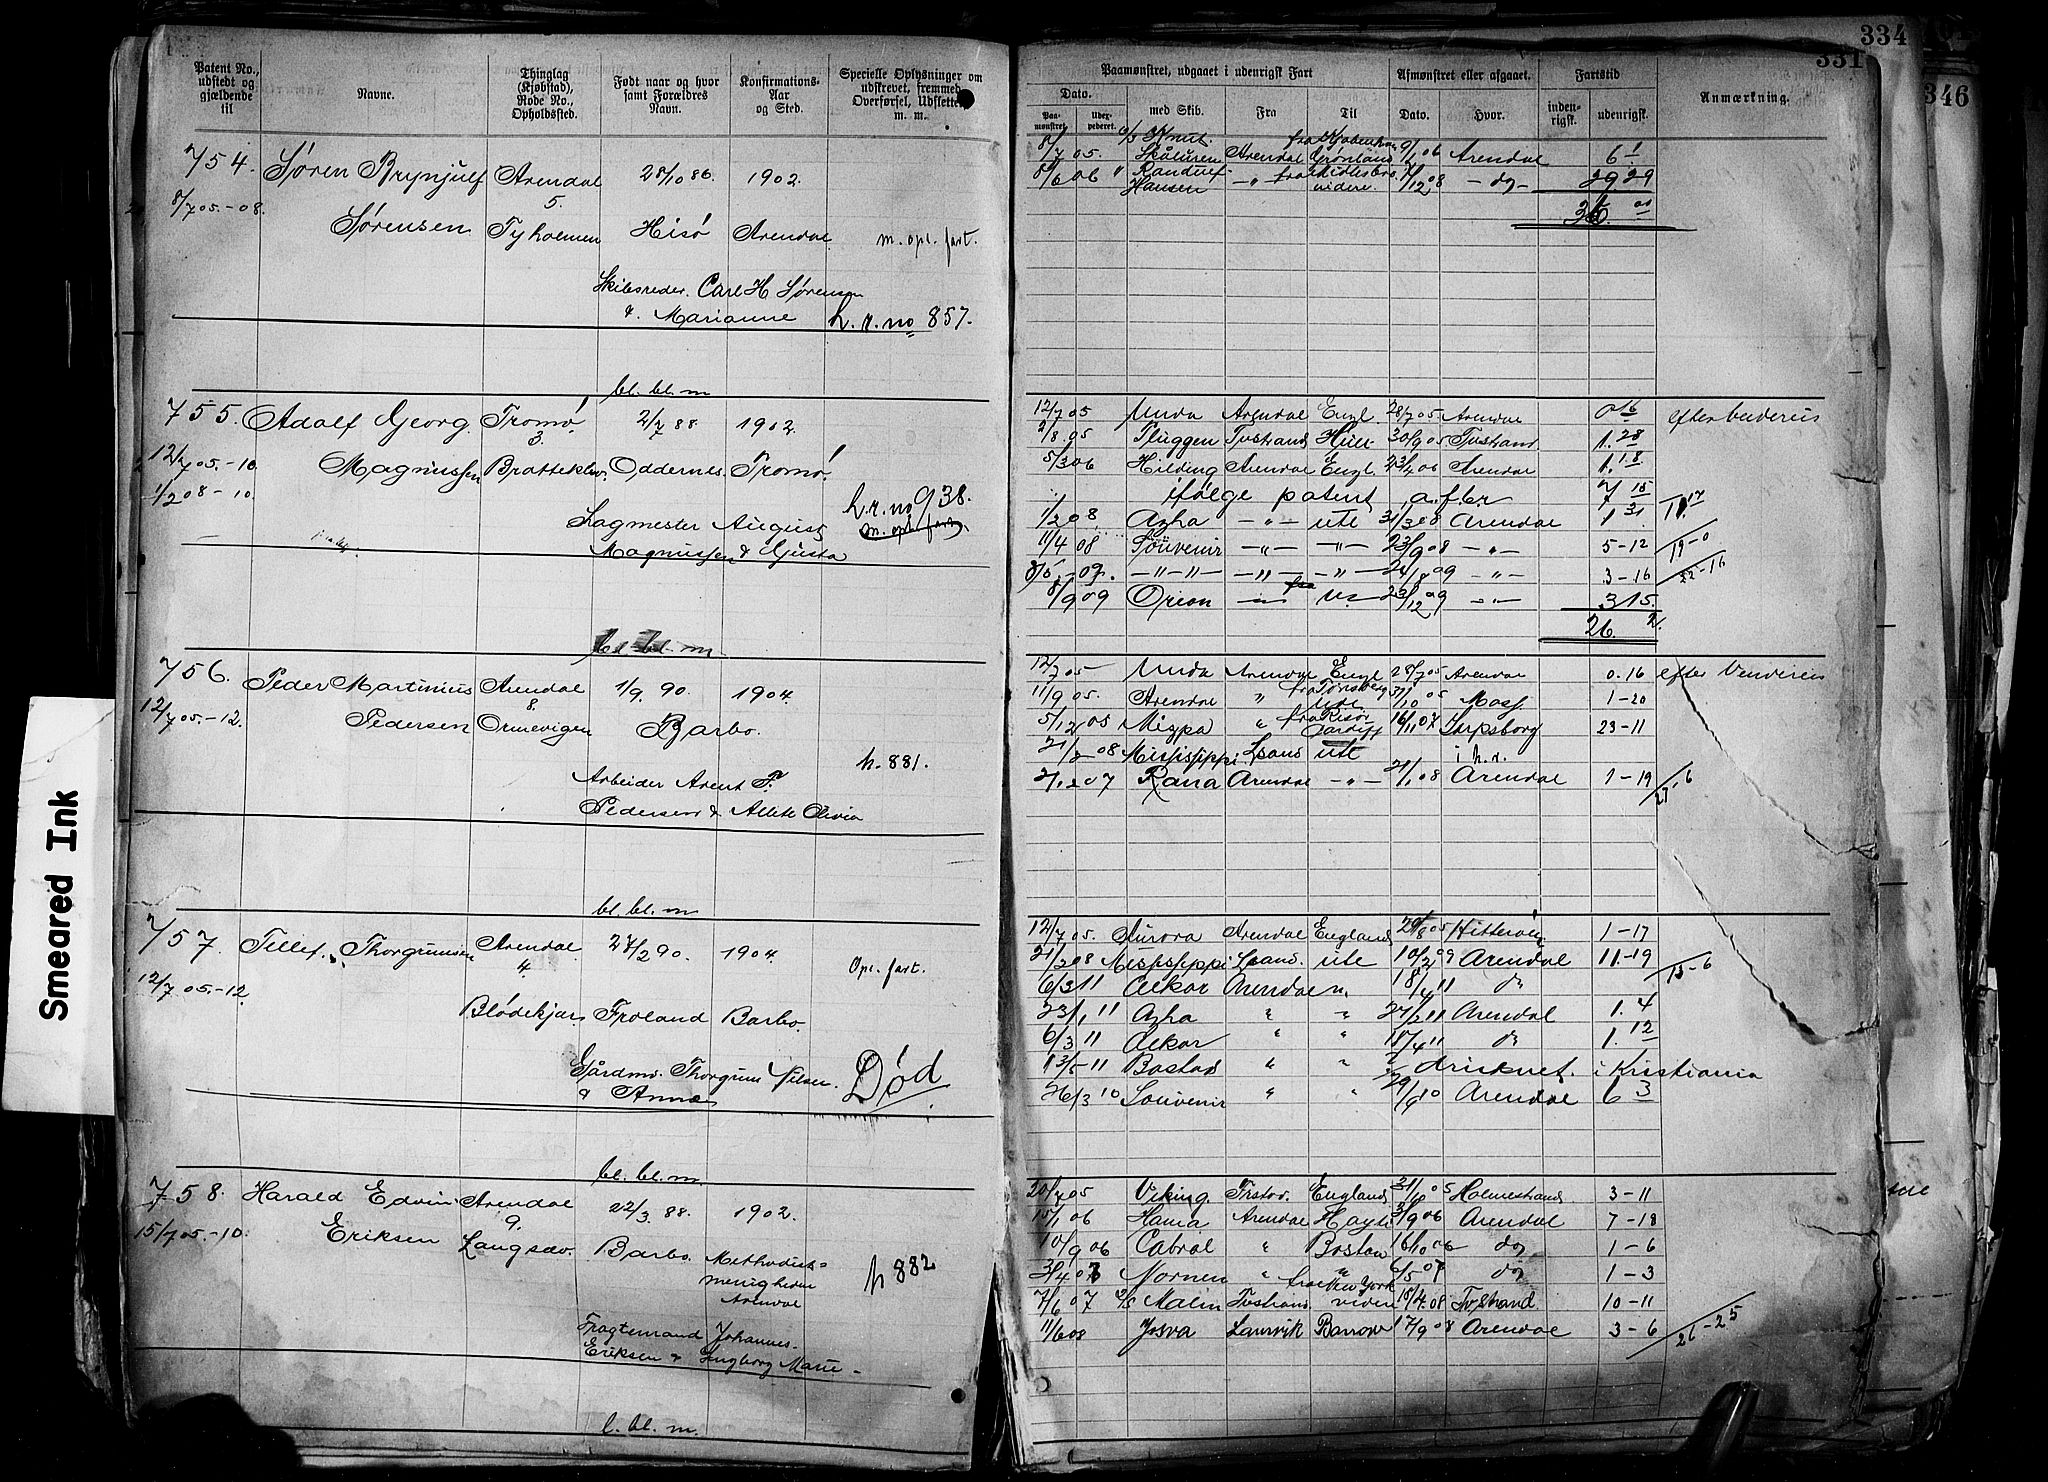 334
331
346
Smeared Ink
Patent No., udstedt og gjældende til
Navne.
Thinglag (Kjøbstad), Rode No., Opholdssted.
Født naar og hvor samt Forældres Navn.
Konfirmations-Aar og Sted.
Specielle Oplysninger om udskrevet, fremmed Overførsel, Udslettet m. m.
Paamønstret, udgaaet i udenrigsk Fart
Afmønstret eller afgaaet.
Fartstid
Anmærkning.
Dato.
med Skib.
Fra
Til
Dato.
Hvor.
inden-rigsk.
udenrigsk.
Paa-mønstret.
754. Søren Brynjulf Arendal 28/10 86 1902.
8/7 05.-08. 5.
Sørensen Tyholmen Hisø Arendal m. opl. fart.
Skibsreder Carl H Sørensen
& Marianne h.r.no 857.
8/7 05. Arendal Grønland 9/ 06 Arendal 6 1
8/6 06 Randulf Hansen -"- videre 12 08 - do - 29 29
bl. bl. m
755. Adolf Georg Tromø 2/7 88 1902.
3.
12/7 05.-10. Magnussen Oddernes Tromø
1/2 08-10. h.r.no 938.
Lagmester August m. opl. fart.
Magnussen & Gusta
12/7 05 Unda Arendal Engl. 28/7 05. Arendal 0 16
2/8 05 Pluggen Tvestrand 30/9 05 Tvestrand 1. 28
5/3 06 Hilding Arendal Engl. 23/4 06 Arendal 1. 18
ifølge patent 7 15
1/2 08. Azha -"- ute 31/3 08 Arendal 1 31 11. 17
11/4 08 Souvenir -"- -"- 23/9 08 -"- 5-12 19-0
8/5 -09. -"-"- -"- -"- 24/8 09 -"- 3-16 22-16
8/9 09 Orion 23/12 09 -"- 3 15.
26. 2.
bl. bl. m
756. Peder Martinius Arendal 1/9. 90. 1904.
8.
12/7 05.-12. Pedersen Ormevigen Barbo.
h. 881.
Arbeider Arent P.
Pedersen & Olivia
12/7 05 Unda Arendal Engl 28/7 05 Arendal 0.16
11/9 05. Arendal " fra Tønsberg ute 31/10 05 Moss 1-20
5/12 05 Mizpa " fra Risør Cardiff 16/11 07 Sarpsborg 23-11
21/2 08 Mississippi ute i h.r.
2/12 07 Rana Arendal -"- 21/1 08 Arendal 1-19
bl. bl. m
757. Tellef Thorgrimsen Arendal 27/2 90. 1904.
4. Opl. fart.
12/7 05.-12.
Blødekjær Froland Barbo.
Gårdmd. Thorgrim Nilsen
& Anne Død
12/7 05. Aurora Arendal England 20/8 05 Hitterø 1-17
21/2 08 Mississippi ute 10/2 09 Arendal 11-19 13-6
6/3 11 Alkor Arendal u. 18/4 11 do
23/1 11 Azha " " 27/2 11 Arendal 1. 4
6/3 11 Alkor " " 18/4 11 do 1. 12
13/5-11 Bastad " " druknet i Kristiania
26/3 10 Souvenir " " 29/9 10 Arendal 6 3
bl. bl. m.
758. Harald Edvin Arendal 22/3. 88. 1902.
9.
15/7 05.-10. Eriksen Langsæv. Barbo. Methodist-menigheden Arendal
h 882
Fragtemand Johannes
Eriksen & Ingborg Marie
20/7 05 Viking. England 31/10 05 Holmestrand 3-11
15/1 06 Hama Arendal Hayti 3/9 06 Arendal 7-18
10/9 06 Cabral " Boston 16/10 06 do 1-6
3/4 07 Nornen " " 6/5 07 do 1-3
7/6 07 Malin Tvestrand New York videre 18/4. 08 Tvestrand. 10-11
11/6 08 Josva Laurvik Barrow 17/9 08 Arendal 3-6 26-25
l. bl. m.